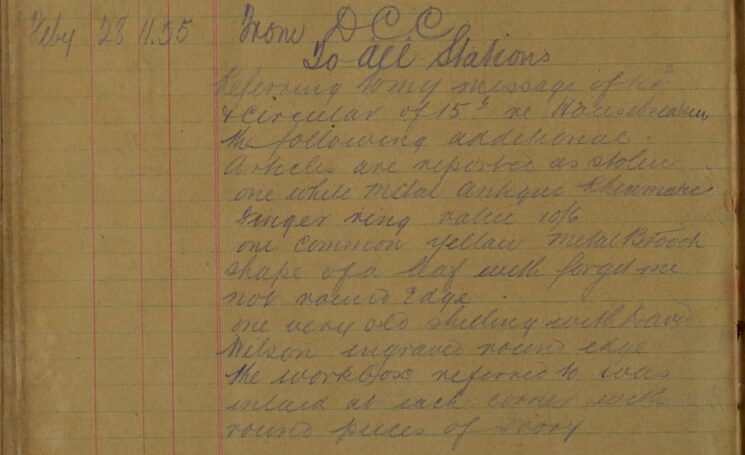 Feby 28 11.55 From D.C.C
To all Stations
Referring to my message of
& circular of 15th re Housebreaking
the following additional
Articles are reported as stolen
one white metal antique
finger ring value 10/6
one common yellow metal Brooch
shape of a leaf with forget me
not round Edge
one very old shilling with David
Wilson engraved round edge
the workbox referred to was
inlaid at each corner with
round pieces of Ivory